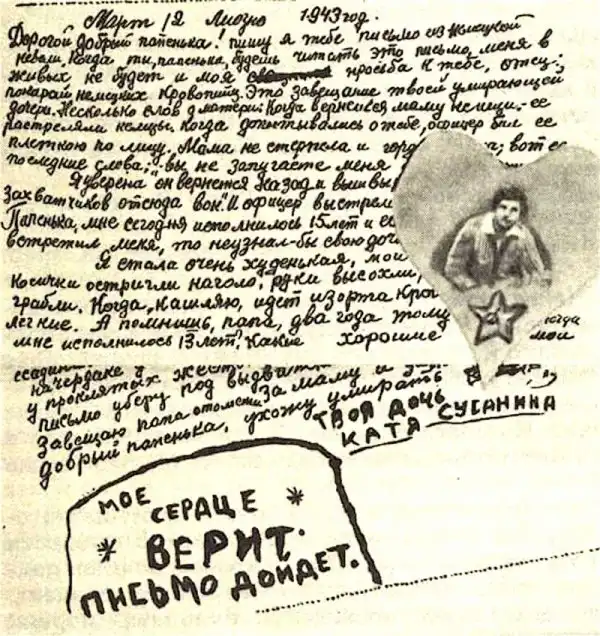 Март, 12 Лиозно 1943 год.
Дорогой добрый папенька! пишу я тебе письмо из немецкой
неволи. Когда ты, папенька, будешь читать это письмо, меня в
живых не будет и моя просьба к тебе, отец:
покарай немецких кровопийц. Это завещание твоей умирающей
дочери. Несколько слов о матери. Когда вернешься маму не ищи.- ее
растреляли немцы. Когда допытывались о тебе, офицер бил ее
плеткою по лицу. Мама не стерпела и гор а; вот ее
последние слова: „вы не запугаете меня
Я уверена он вернется назад и вышвы
захватчиков отсюда вон". И офицер выстрел
Папенька, мне сегодня исполнилось 15 лет и е
встретил меня, то неузнал-бы свою доч
Я стала очень худенькая, мои
косички остригли наголо, руки высохли,
грабли. Когда, кашляю, идет изорта кро
легкие. А помнишь, папа, два года тому когда
мне исполнилось 13 лет. Какие хорошие мои
на чердаке у
у проклятых жест
письмо уберу под
Завещаю папа отомсти: за маму и
добрый папенька, ухожу умирать
ТВОЯ ДОЧЬ
КАТЯ СУСАНИНА
МОЕ
СЕРДЦЕ
ВЕРИТ.
ПИСЬМО ДОЙДЕТ.